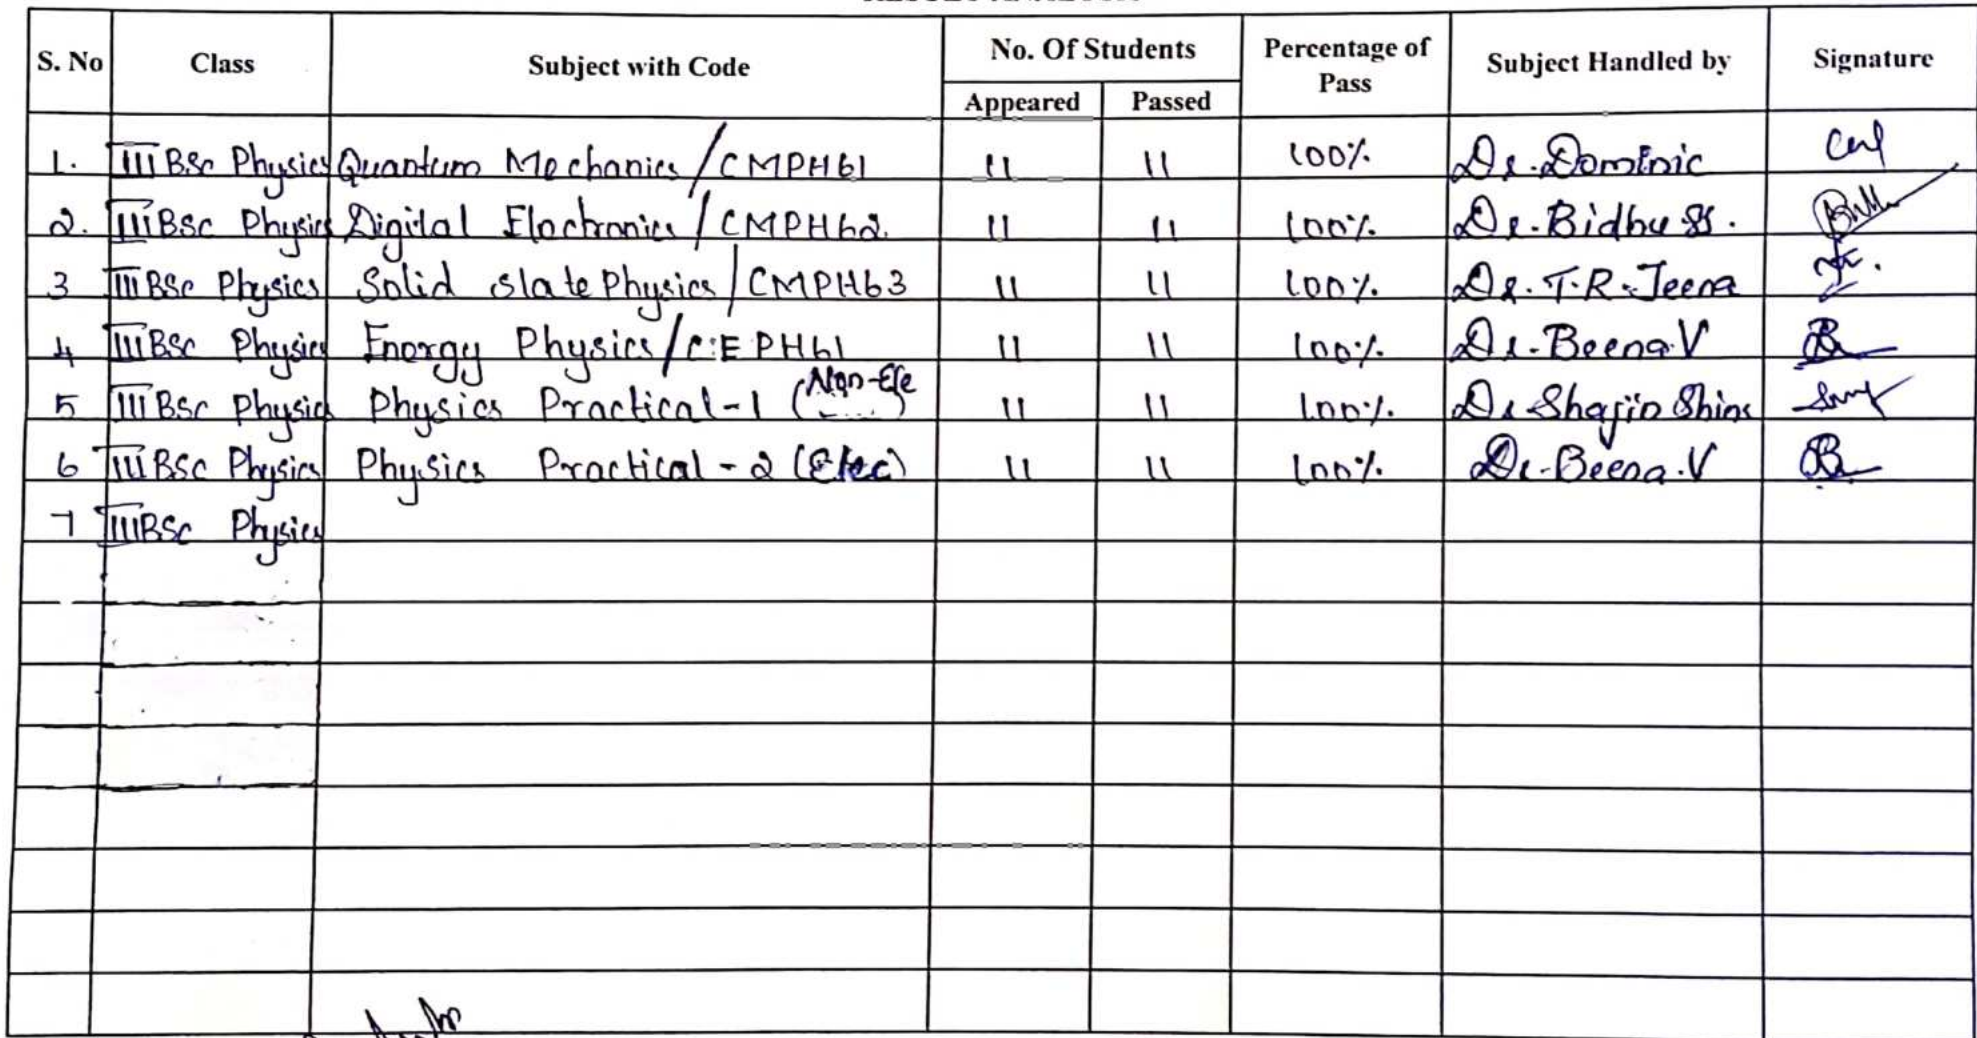 S. No Class Subject with Code No. Of Students Percentage of Pass Subject Handled by Signature
Appeared Passed
1. III BSc Physics Quantum Mechanics / CMPH61 11 11 100% Dr. Dominic
2. III BSc Physics Digital Electronics / CMPH62. 11 11 100% Dr. Bidhu SS.
3 III BSc Physics Solid state Physics / CMPH63 11 11 100% Dr. T.R. Jeena
4 III BSc Physics Energy Physics / CEPH61 11 11 100% Dr. Beena V
5 III BSc Physics Physics Practical-1 (Non-Ele) 11 11 100% Dr Shajin Shins
6 III BSc Physics Physics Practical - 2 (Elec) 11 11 100% Dr. Beena. V
7 III BSc Physics